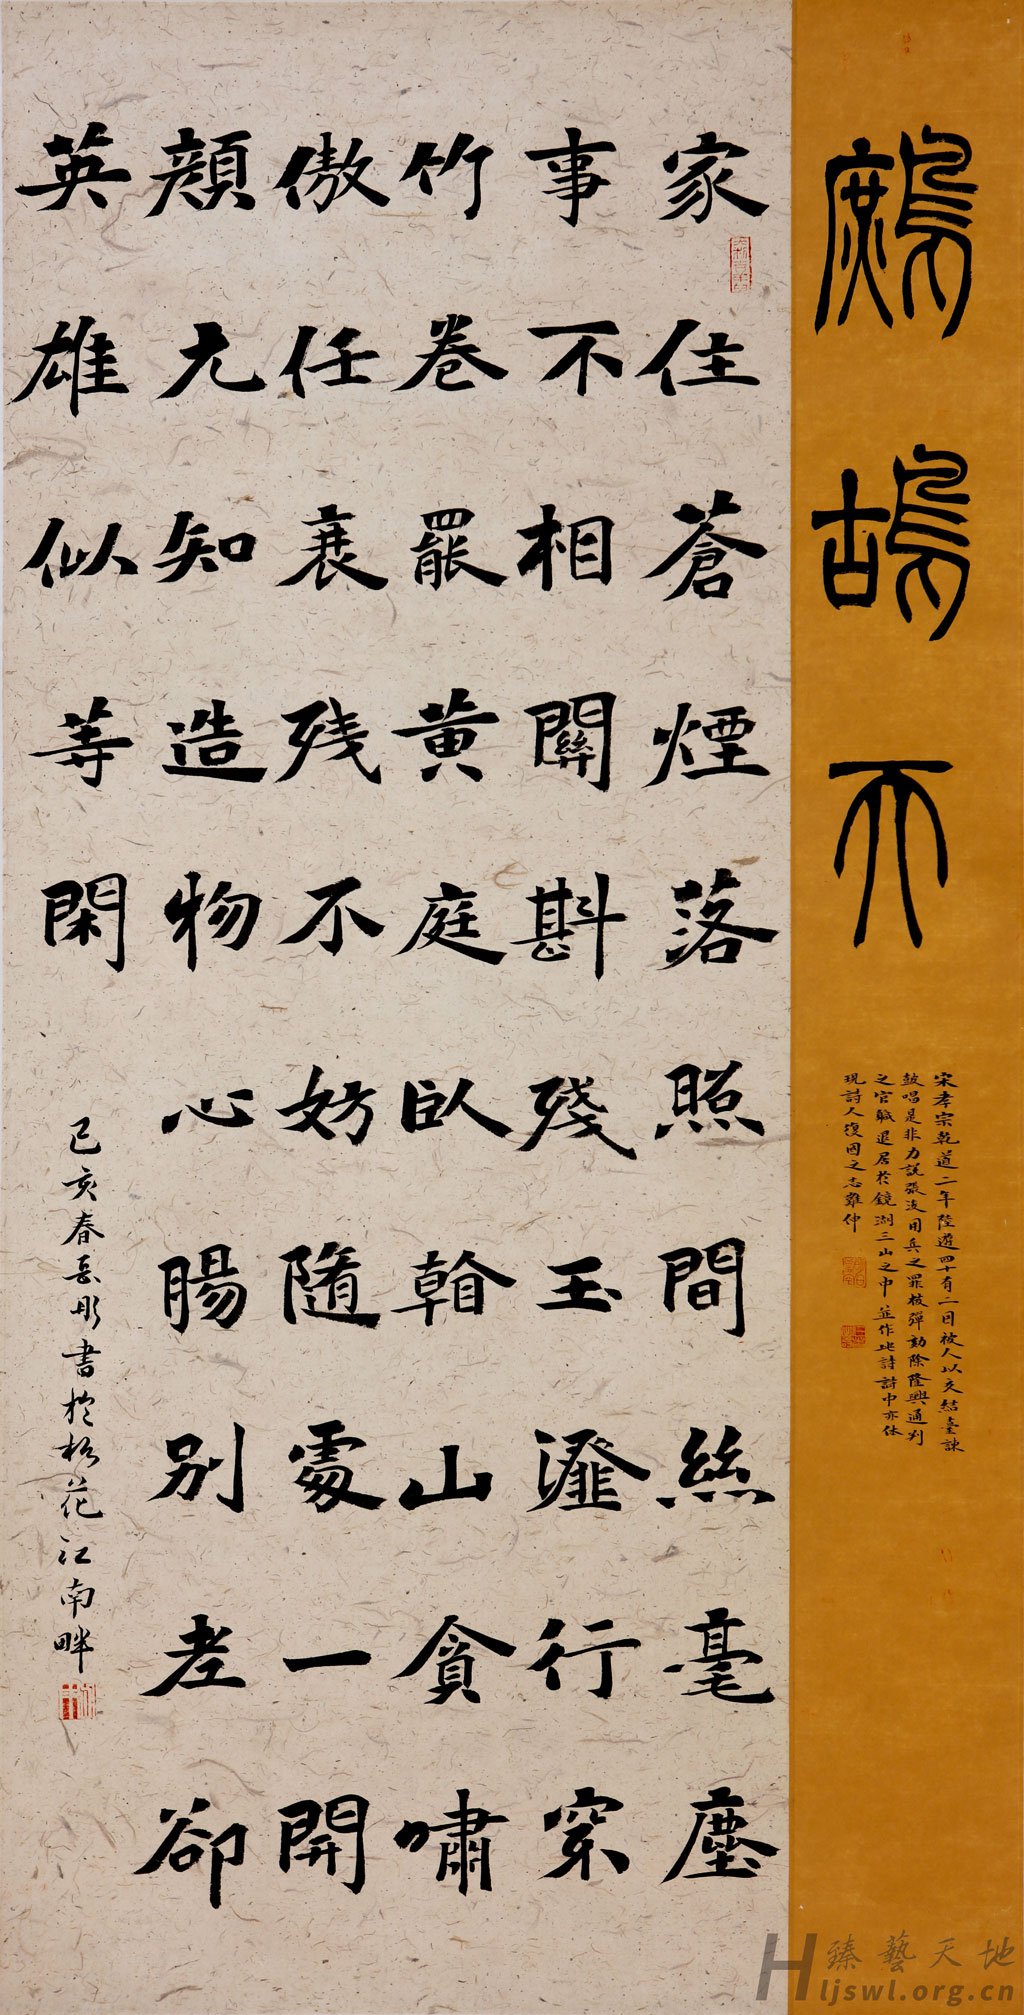 鷓鴣天
宋孝宗乾道二年陸遊四十有二因被人以交結臺諫
鼓唱是非力說張浚用兵之罪被彈劾除隆興通判
之官職退居於鏡湖三山之中並作此詩詩中亦体
現詩人復國之志難伸
家住蒼煙落照間絲毫塵
事不相關斟殘玉瀣行穿
竹卷罷黃庭臥看山貪嘯
傲任衰残不妨隨處一開
顏元知造物心腸別老卻
英雄似等閑
己亥春岳彤書於松花江南畔
臻藝天地
Hljswl.org.cn